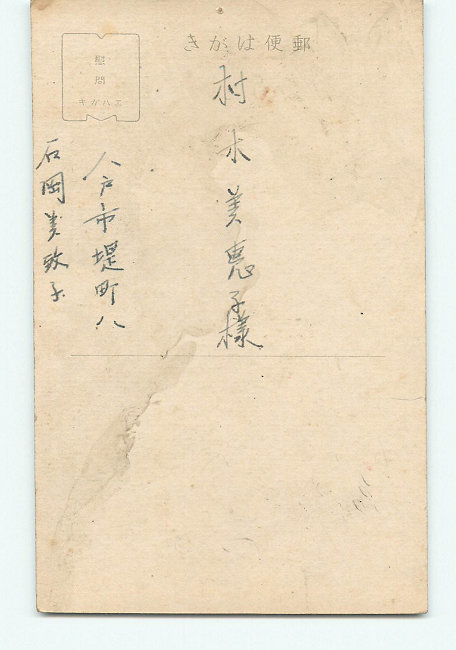 きがは便郵
慰問
エハガキ
村木美恵子様
八戸市堤町八
石岡美致子